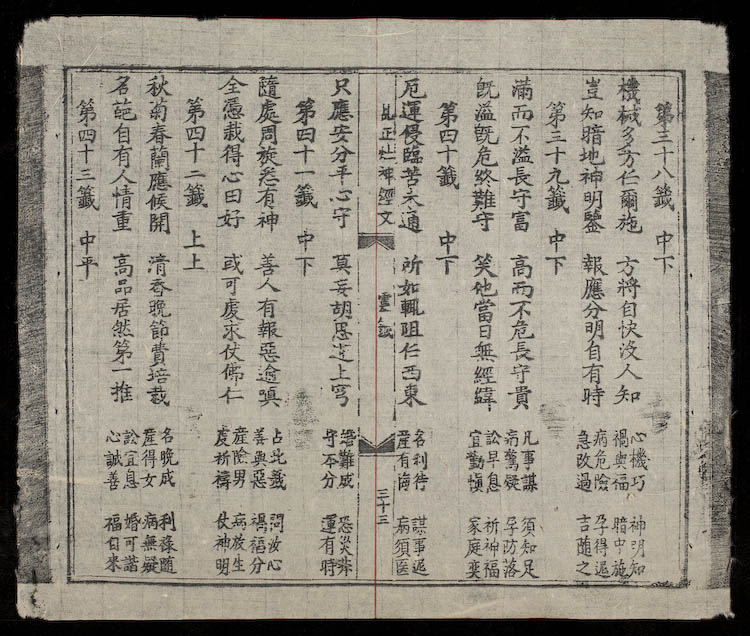 第三十八籤 中下
機械多方任爾施 方將自快沒人知 心機巧 神明知
禍與福 暗中施
豈知暗地神明鑒 報應分明自有時 病危險 孕得退
急改過 吉隨之
第三十九籤 中下
滿而不溢長守富 高而不危長守貴 凡事謀 須知足
病驚疑 孕防落
既溢既危終難守 笑他當日無經緯 訟早息 祈神福
宜勤慎 家庭奕
第四十籤 中下
厄運侵臨苦未通 所如輒阻任西東 名利待 謀事遲
產有 病須医
乩正灶神經文 靈籤 三十三
只應安分平心守 莫妄胡思 上穹 難成 恐災非
守本分 運有時
第四十一籤 中下
隨處周旋悉有神 善人有報惡逾嗔 占此籤 問汝心
善與惡 禍福分
全憑栽得心田好 或可虔求仗佛仁 產險男 病放生
虔祈禱 仗神明
第四十二籤 上上
秋菊春蘭應候開 清香晚節費培栽 名晚成 利祿隨
產得女 病無疑
名葩自有人情重 高品居然第一推 訟宜息 婚可諧
心誠善 福自來
第四十三籤 中平